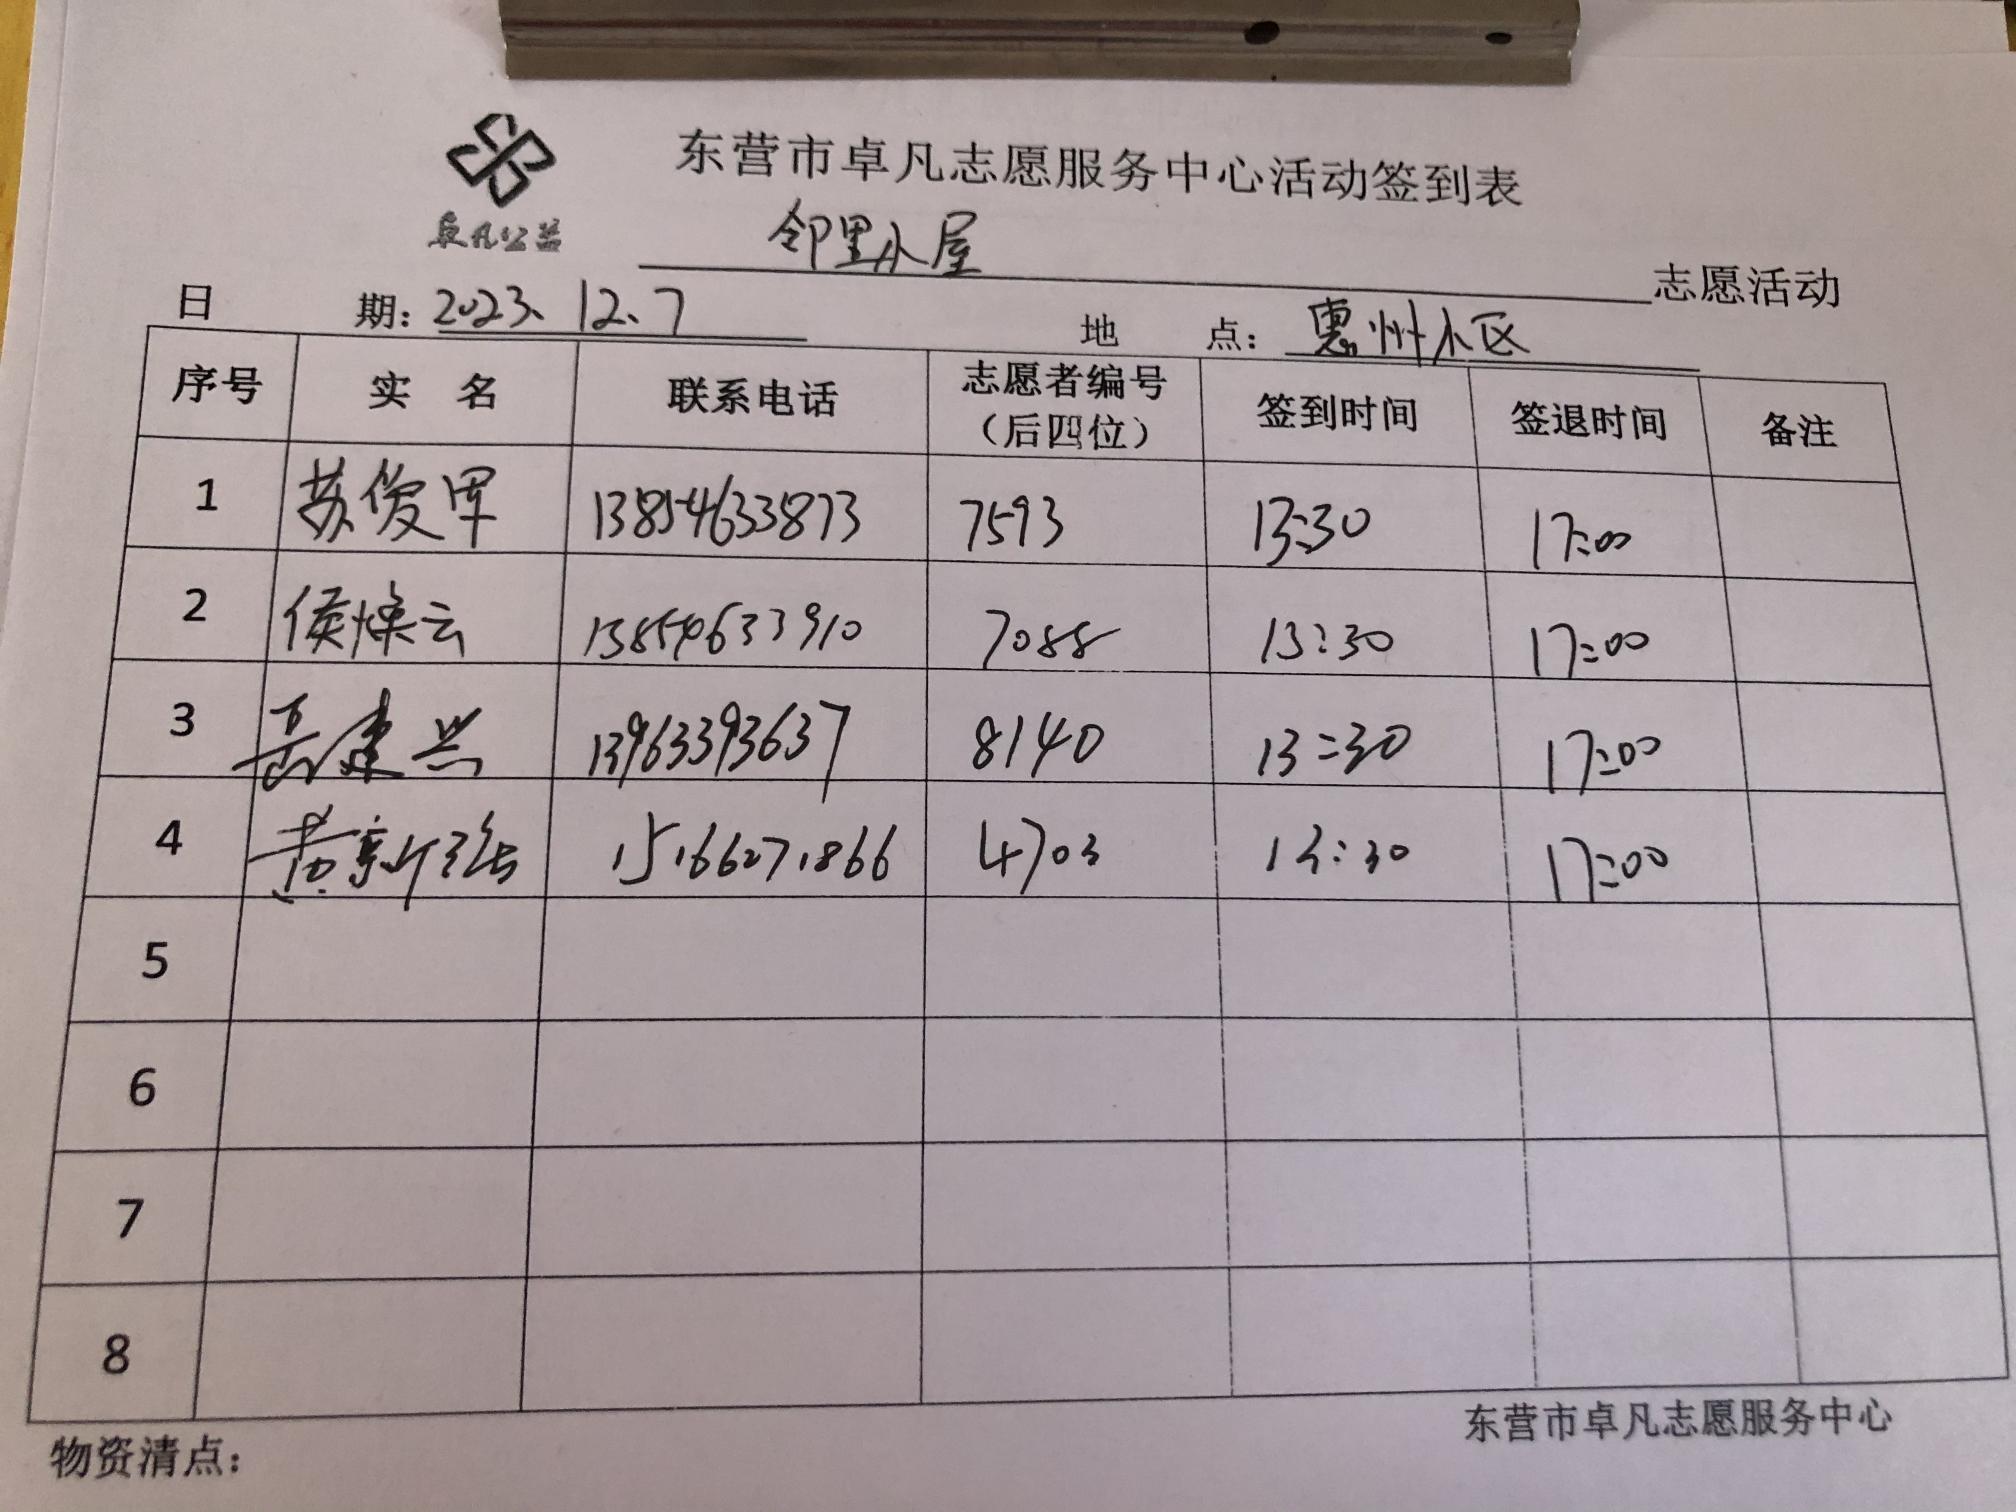 东营市卓凡志愿服务中心活动签到表
卓凡公益
邻里小屋 志愿活动
日 期：2023.12.7 地 点：惠州小区
序号 实 名 联系电话 志愿者编号（后四位） 签到时间 签退时间 备注
1 苏俊军 13854633873 7593 13:30 17:00
2 侯焕云 13854633910 7088 13:30 17:00
3 聂建兴 13963393637 8140 13:30 17:00
4 黄新强 15166271866 4703 13:30 17:00
5
6
7
8
东营市卓凡志愿服务中心
物资清点：